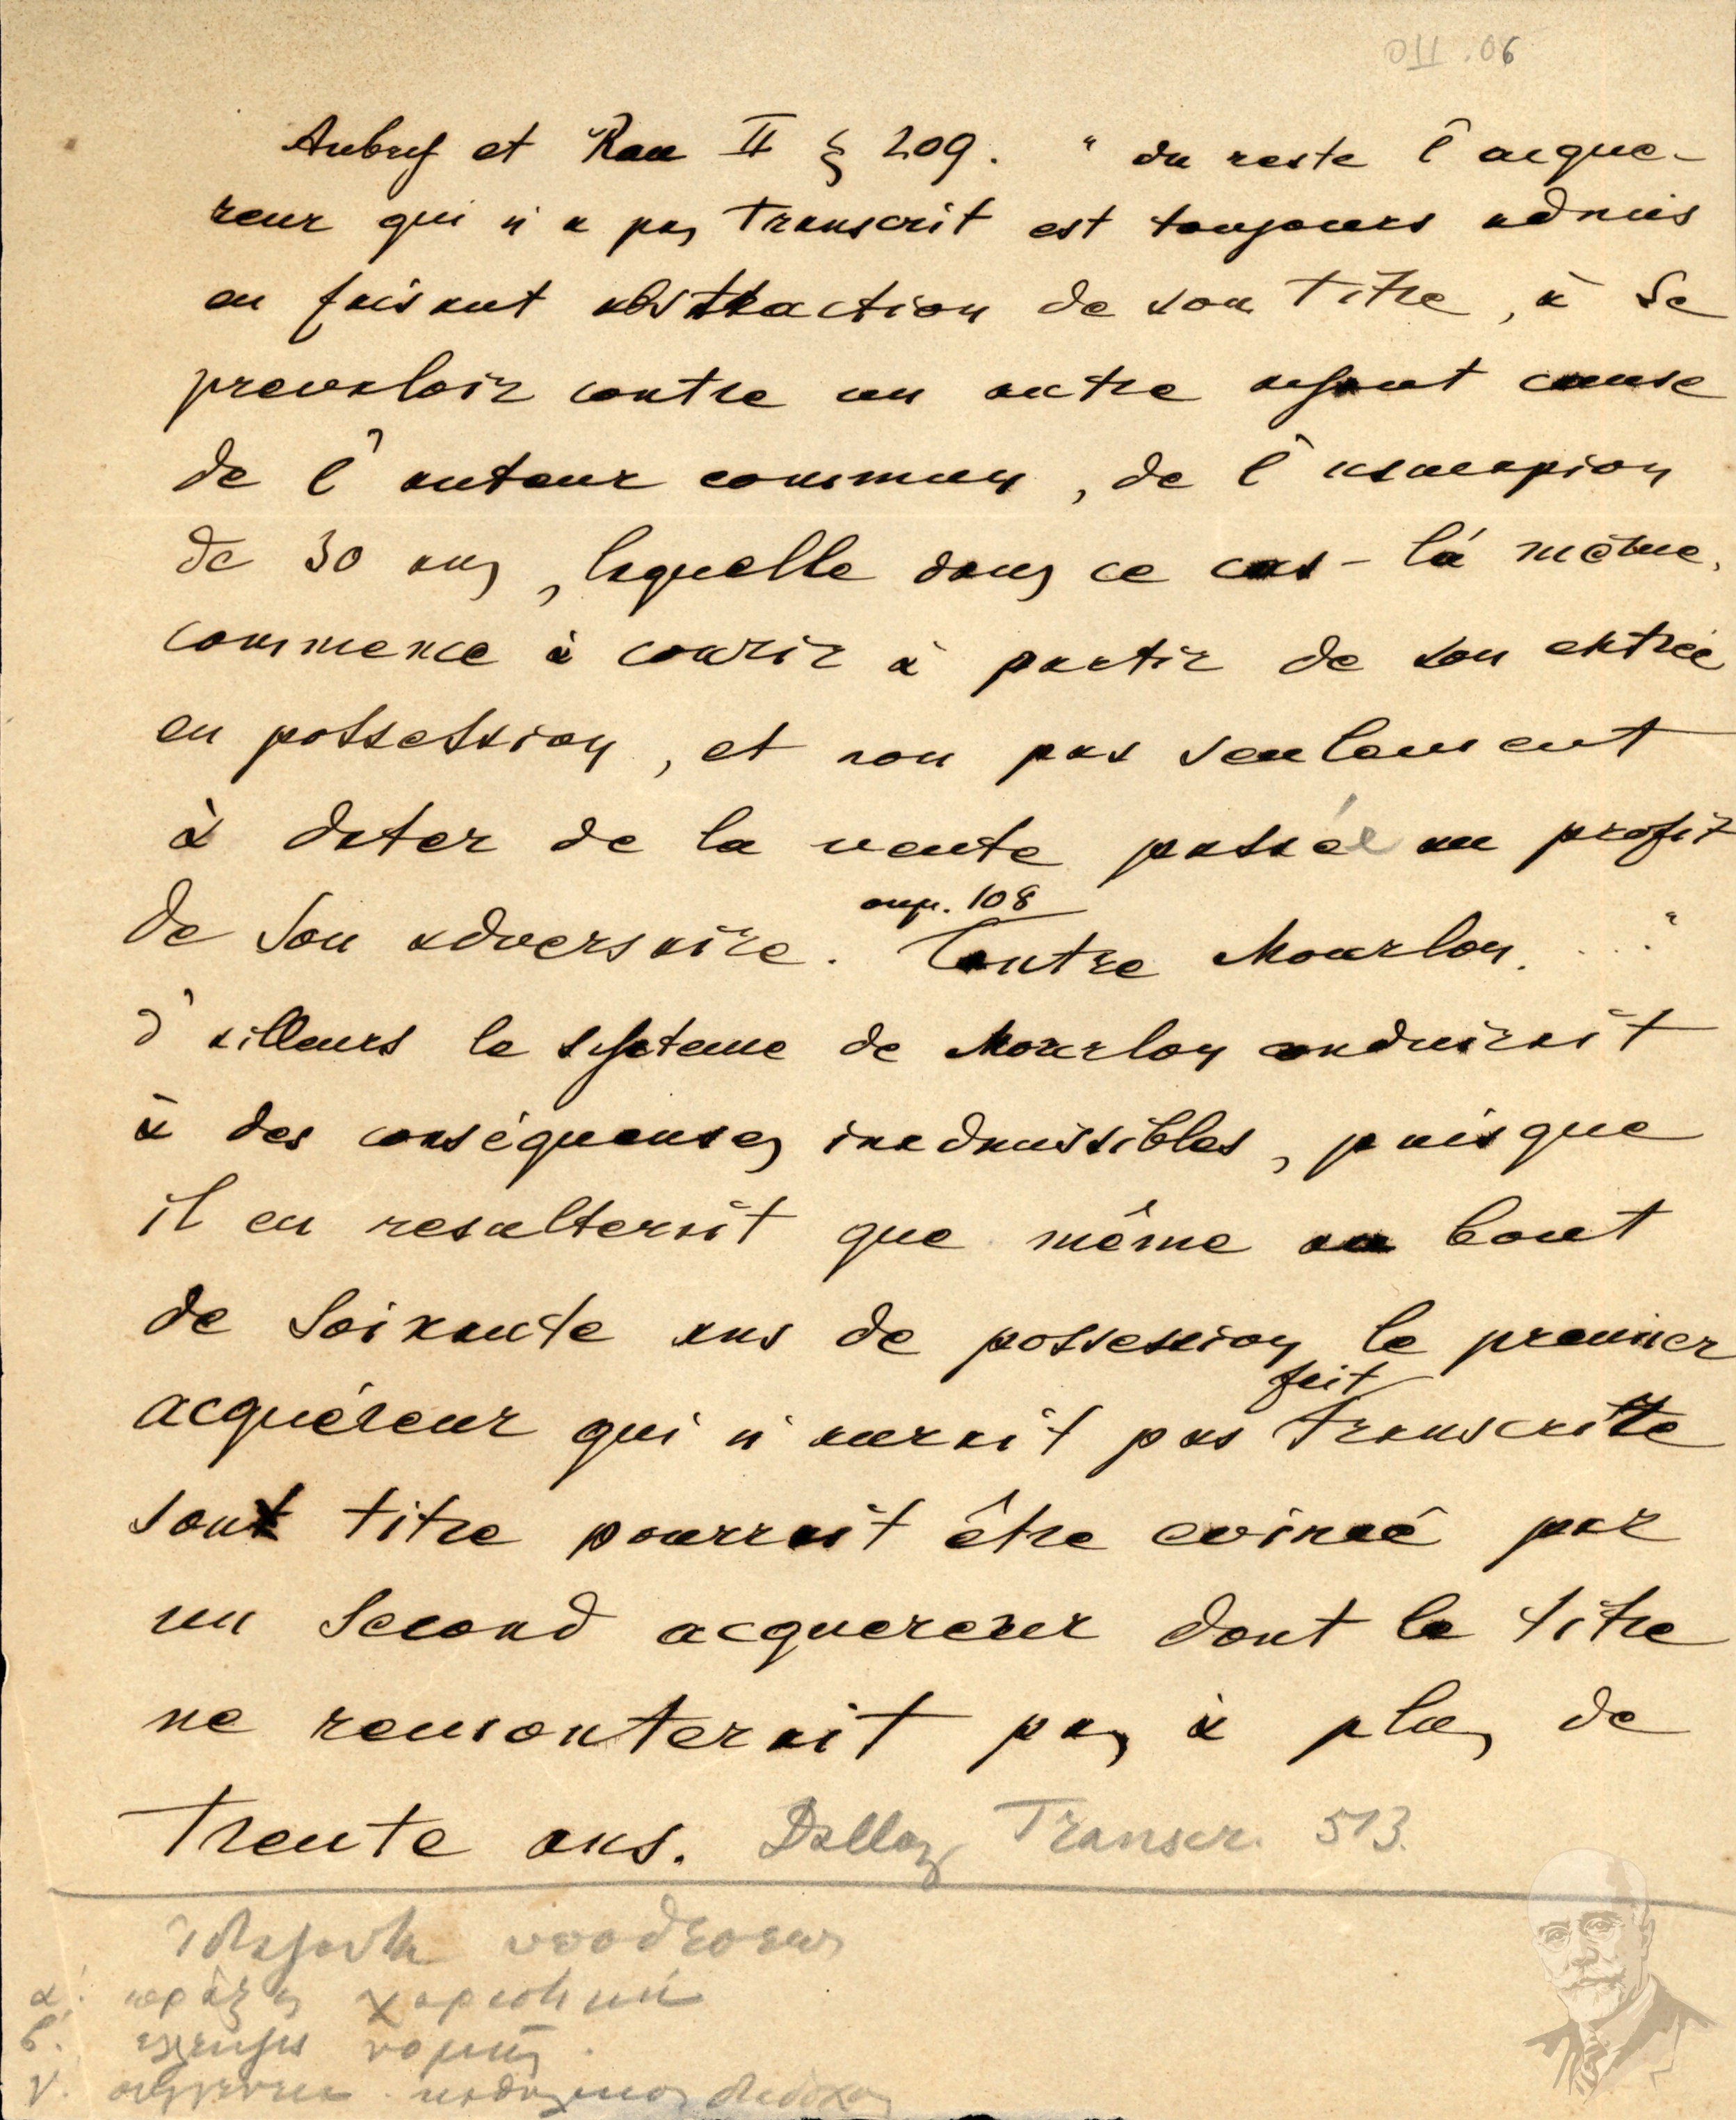 Aubry et Rau II § 209. " du reste l'acque-
reur qui n'a pas transcrit est toujours admis
en faisant abstraction de son titre, à se
prevaloir contre un autre ayant cause
de l'auteur commun, de l'usucapion
de 30 ans, laquelle dans ce cas-là même,
commence à courir à partir de son entrée
en possession, et non pas seulement
à dater de la vente passée au profit
108
de son adversaire. Contre Mourlon. ..."
d'ailleurs le systeme de Mourlon conduirait
à des conséquenses inadmissibles, puisque
il en resulterait que même au bout
de soixante ans de possession le premier
fait
acquéreur qui n'aurait pas transcrite
son titre pourrait être evincé par
un second acquereur dont le titre
ne remonterait pas à plus de
trente ans. Dalloz Transcr. 513.
υποθεσεως
α'. πράξις χαριστική
β. νομής.
γ. καθολικος διαδοχος